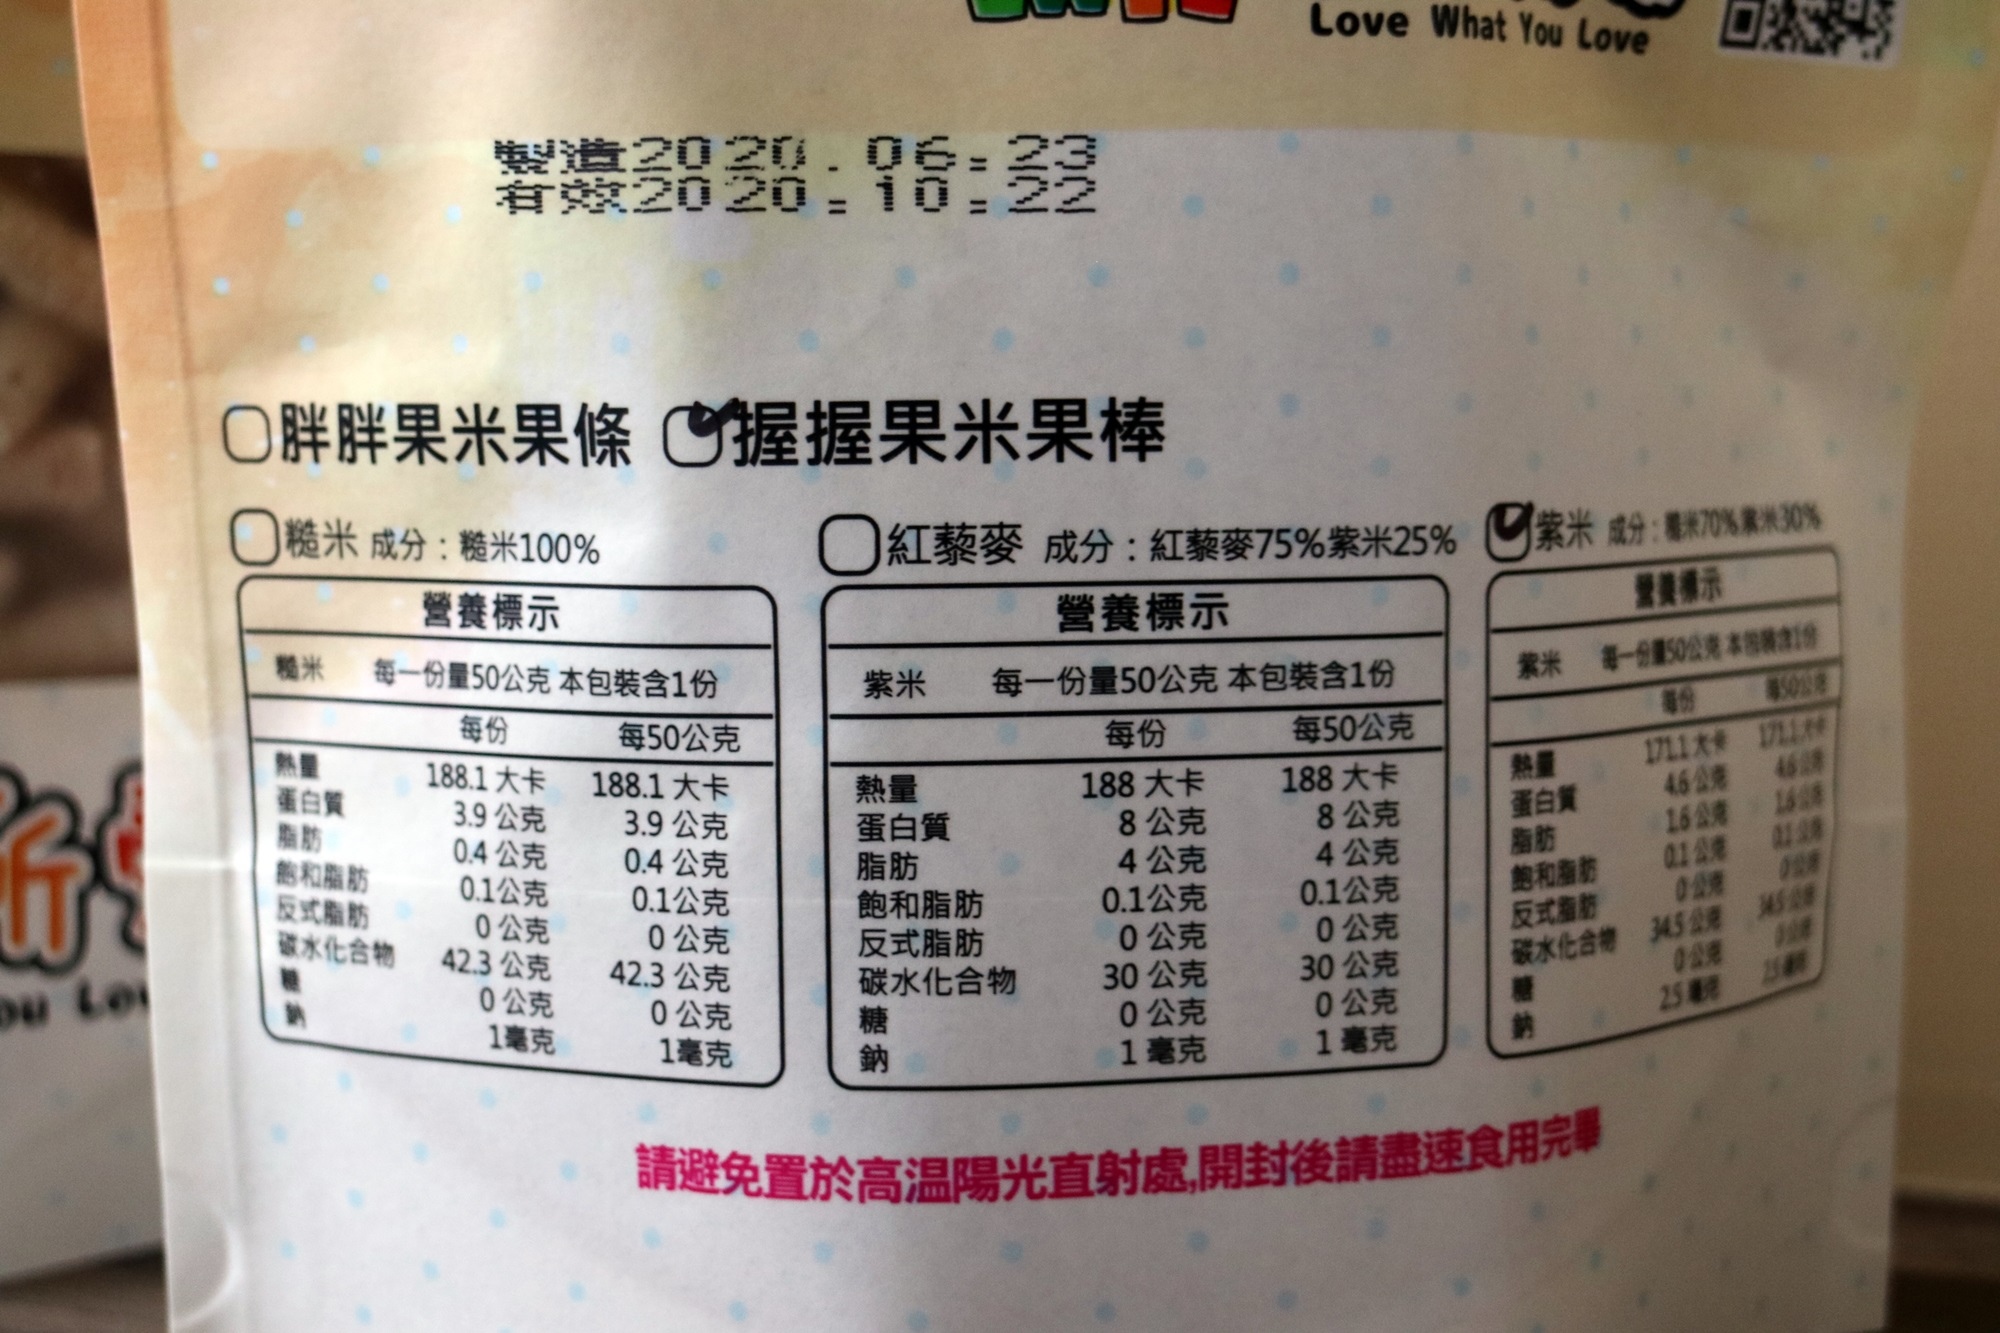 Love What You Love
製造2020.06.23
有效2020.10.22
胖胖果米果條 握握果米果棒
糙米 成分：糙米100%
營養標示
糙米 每一份量50公克 本包裝含1份
每份 每50公克
熱量 188.1 大卡 188.1 大卡
蛋白質 3.9 公克 3.9 公克
脂肪 0.4 公克 0.4 公克
飽和脂肪 0.1公克 0.1公克
反式脂肪 0 公克 0 公克
碳水化合物 42.3 公克 42.3 公克
糖 0 公克 0 公克
鈉 1毫克 1毫克
紅藜麥 成分：紅藜麥75%紫米25%
營養標示
紫米 每一份量50公克 本包裝含1份
每份 每50公克
熱量 188 大卡 188 大卡
蛋白質 8 公克 8 公克
脂肪 4 公克 4 公克
飽和脂肪 0.1公克 0.1公克
反式脂肪 0 公克 0 公克
碳水化合物 30 公克 30 公克
糖 0 公克 0 公克
鈉 1 毫克 1 毫克
紫米 成分：糙米70%紫米30%
營養標示
紫米 每一份量50公克 本包裝含1份
每份 每50公克
熱量 171.1 大卡 171.1 大卡
蛋白質 4.6 公克 4.6 公克
脂肪 1.6 公克 1.6 公克
飽和脂肪 0.1 公克 0.1 公克
反式脂肪 0 公克 0 公克
碳水化合物 34.5 公克 34.5 公克
糖 0 公克 0 公克
鈉 2.5 毫克 2.5 毫克
請避免置於高溫陽光直射處,開封後請盡速食用完畢